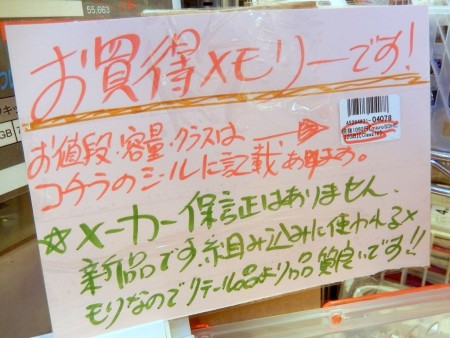 55,663
お買得メモリーです!
お値段・容量・クラスは
コチラのシールに記載あります。
04078
☆メーカー保証はありません。
新品です。組み込みに使われるメ
モリなのでリテール品より品質良いです!!